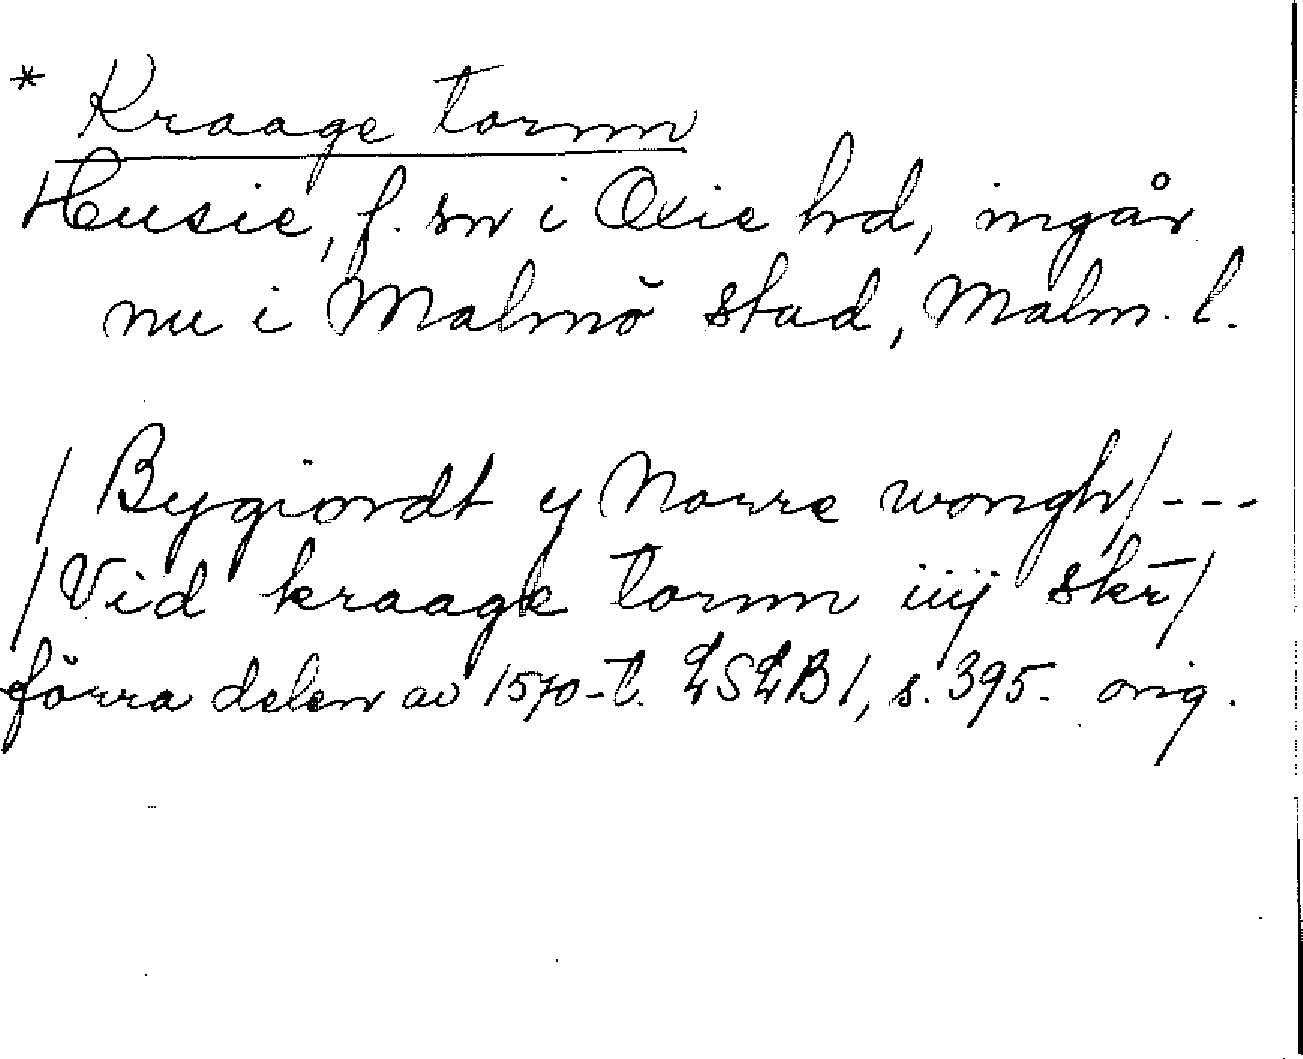 * Kraage tornn
Husie, f. sn i Oxie hd, ingår
nu i Malmö stad, Malm. l.
/ Bygiordt y Norre wongh / ---
/ Vid kraage tornn iiij skr̄ /
förra delen av 1570-t. LSLB 1, s. 395. orig.